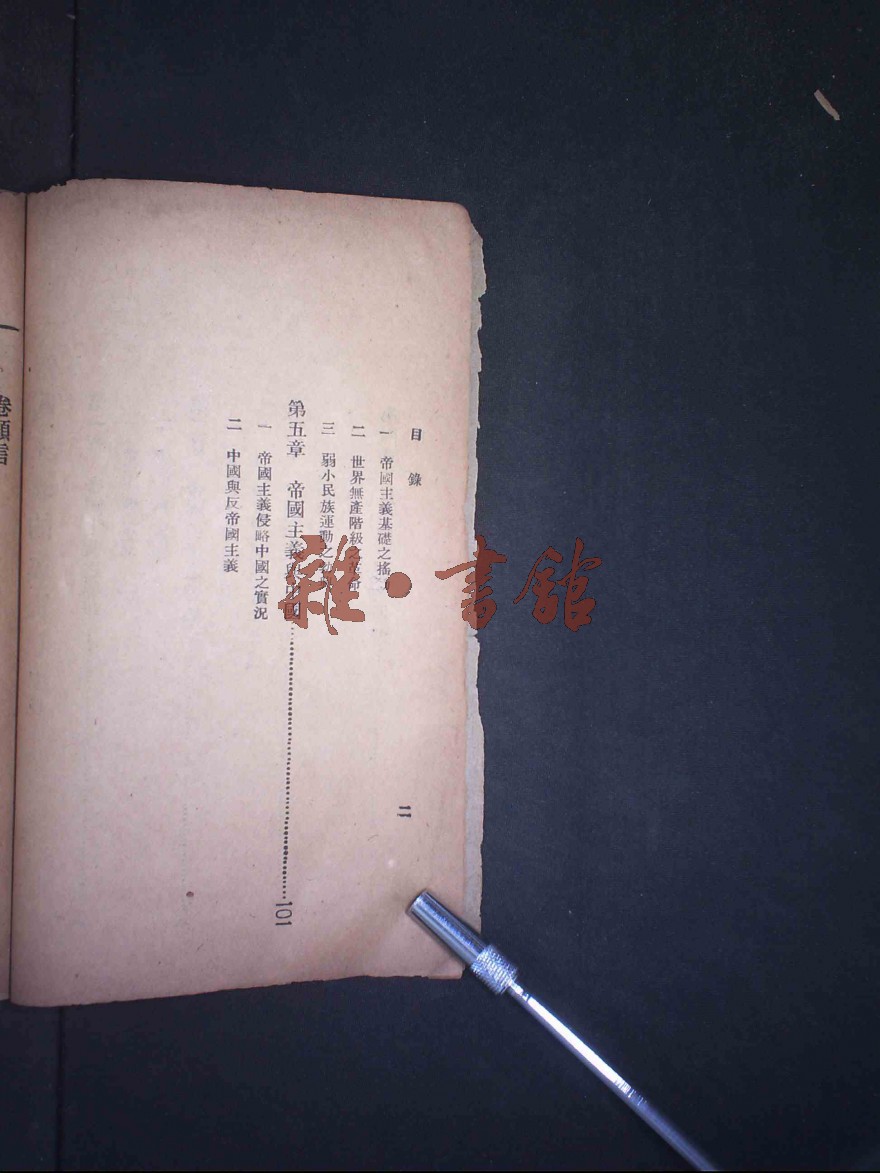 目錄
一 帝國主義基礎之搖
二 世界無產階級之革命
三 弱小民族運動之
第五章 帝國主義與中國……101
一 帝國主義侵略中國之實況
二 中國與反帝國主義
二
卷頭言
雜·書館